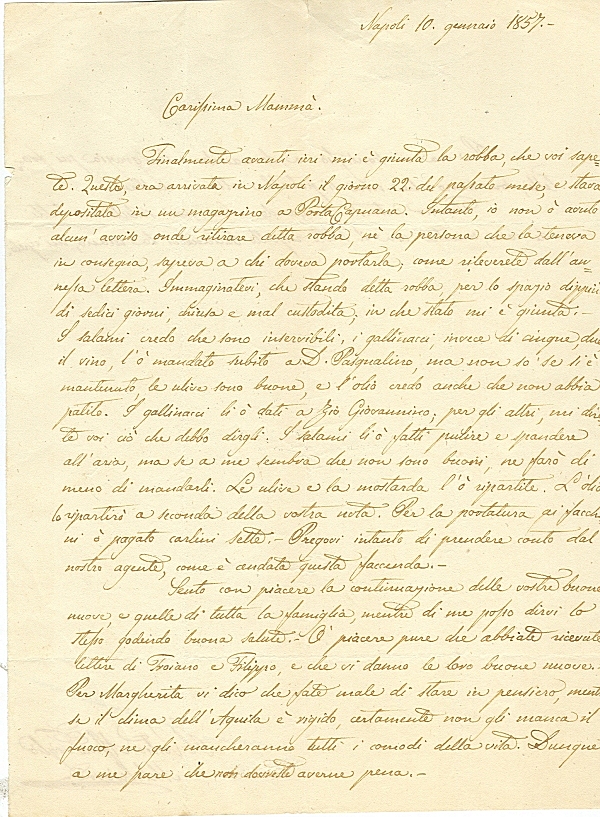 Napoli 10. gennaio 1857.-
Carissima Mammà.
Finalmente avanti ieri mi è giunta la robba, che voi sape=
te. Questa, era arrivata in Napoli il giorno 22. del passato mese, e stava
depositata in un magazzino a Porta Capuana. Intanto, io non ò avuto
alcun'avviso onde ritirare detta robba, nè la persona che la teneva
in consegna, sapeva a chi doveva portarla, come rileverete dall'an=
nessa lettera. Immaginatevi, che stando detta robba, per lo spazio di più
di sedici giorni, chiusa e mal custodita, in che stato mi è giunta:-
I salami credo che sono inservibili, i gallinacci, invece di cinque due
il vino, l'ò mandato subito a D. Pasqualino, ma non so se si è
mantenuto, le ulive sono buone, e l'olio credo anche che non abbia
patito. I gallinacci li ò dati a Zio Giovannino; per gli altri, mi di
te voi ciò che debbo dirgli. I salami li ò fatti pulire e spandere
all'aria, ma se a me sembra che non sono buoni, ne farò di
meno di mandarli. Le ulive e la mostarda l'ò ripartite. L'olio
lo ripartirò a seconda della vostra nota. Per la portatura ai facchi
ni ò pagato carlini sette.- Pregovi intanto di prendere conto dal
nostro agente, come è andata questa faccenda.-
Sento con piacere la continuazione delle vostre buone
nuove, e quelle di tutta la famiglia, mentre di me posso dirvi lo
stesso godendo buona salute:- Ò piacere pure che abbiate ricevute
lettere di Troiano e Filippo, e che vi danno le loro buone nuove.
Per Margherita vi dico che fate male di stare in pensiero, ment
se il clima dell'Aquila è rigido, certamente non gli manca il
fuoco, ne gli mancheranno tutti i comodi della vita. Dunque
a me pare che non dovreste averne pena.-